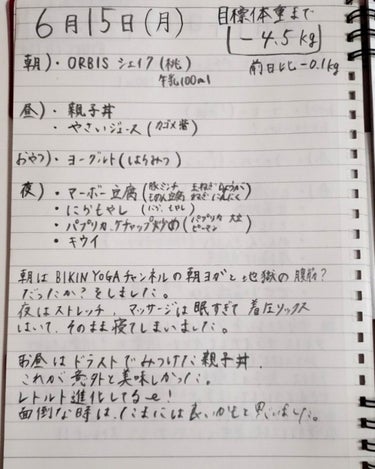 6月15日(月)
目標体重まで
-4.5kg
前日比 -0.1kg
朝)・ORBIS シェイク(桃)
牛乳100ml
昼)・親子丼
・やさいジュース(カゴメ
おやつ)・ヨーグルト(はちみつ)
夜)・マーボー豆腐(豚ミンチ 玉ねぎ しょうが
もめん豆腐 にんにく
・にらもやし(にら、もやし)
・パプリカ、ケチャップ炒め(パプリカ 大豆
ピーマン
・キウイ
朝はBIKIN YOGAチャンネルの朝ヨガと地獄の腹筋?
だったか?をしました。
夜はストレッチ、マッサージは眠すぎて着圧ソックス
はいて、そのまま寝てしまいました。
お昼はドラストでみつけた親子丼。
これが意外と美味しかった。
レトルト進化してるぅー!
面倒な時は、たまには良いかもと思いました。